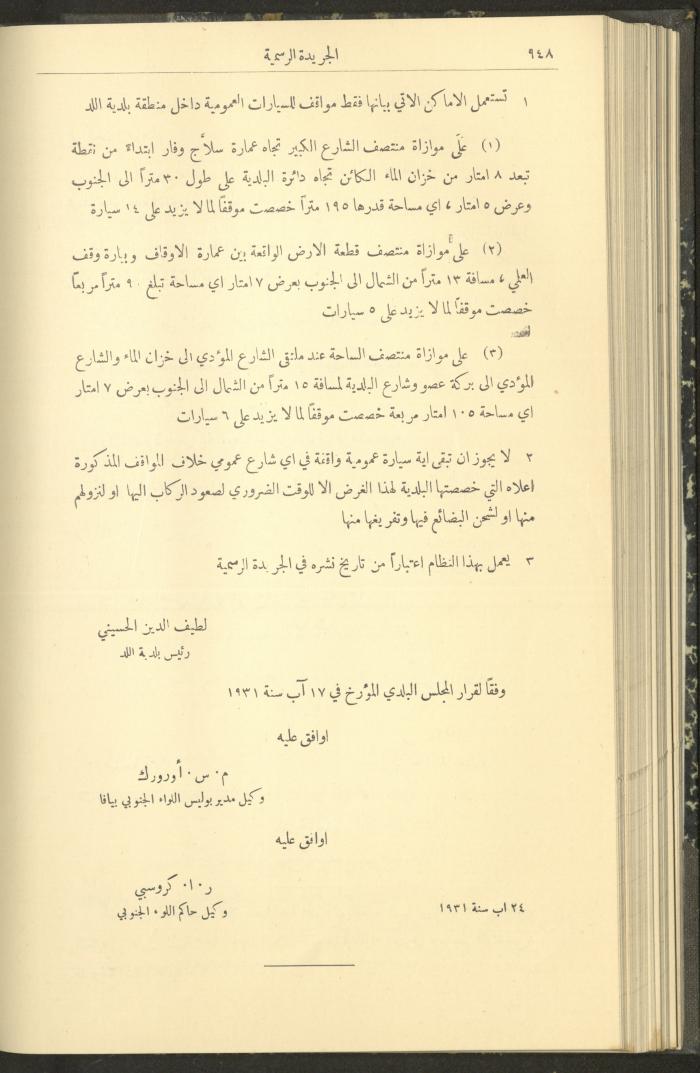 ٩٤٨
الجريدة الرسمية
١ تستعمل الاماكن الاتي بيانها فقط مواقف للسيارات العمومية داخل منطقة بلدية اللد
(١) على موازاة منتصف الشارع الكبير تجاه عمارة سلاّج وفار ابتداءً من نقطة
تبعد ٨ امتار من خزان الماء الكائن تجاه دائرة البلدية على طول ٣٠ متراً الى الجنوب
وعرض ٥ امتار ، اي مساحة قدرها ١٩٥ متراً خصصت موقفاً لما لا يزيد على ١٤ سيارة
(٢) على موازاة منتصف قطعة الارض الواقعة بين عمارة الاوقاف وبيارة وقف
العلمي ، مسافة ١٣ متراً من الشمال الى الجنوب بعرض ٧ امتار اي مساحة تبلغ ٩٠ متراً مربعاً
خصصت موقفاً لما لا يزيد على ٥ سيارات
(٣) على موازاة منتصف الساحة عند ملتقى الشارع المؤدي الى خزان الماء والشارع
المؤدي الى بركة عصو وشارع البلدية لمسافة ١٥ متراً من الشمال الى الجنوب بعرض ٧ امتار
اي مساحة ١٠٥ امتار مربعة خصصت موقفاً لما لا يزيد على ٦ سيارات
٢ لا يجوز ان تبقى اية سيارة عمومية واقفة في اي شارع عمومي خلاف المواقف المذكورة
اعلاه التي خصصتها البلدية لهذا الغرض الا للوقت الضروري لصعود الركاب اليها او لنزولهم
منها او لشحن البضائع فيها وتفريغها منها
٣ يعمل بهذا النظام اعتباراً من تاريخ نشره في الجريدة الرسمية
لطيف الدين الحسيني
رئيس بلدية اللد
وفقاً لقرار المجلس البلدي المؤرخ في ١٧ آب سنة ١٩٣١
اوافق عليه
م٠ س٠ أورورك
وكيل مدير بوليس اللواء الجنوبي بيافا
اوافق عليه
ر٠ا٠ كروسبي
٢٤ اب سنة ١٩٣١
وكيل حاكم اللواء الجنوبي